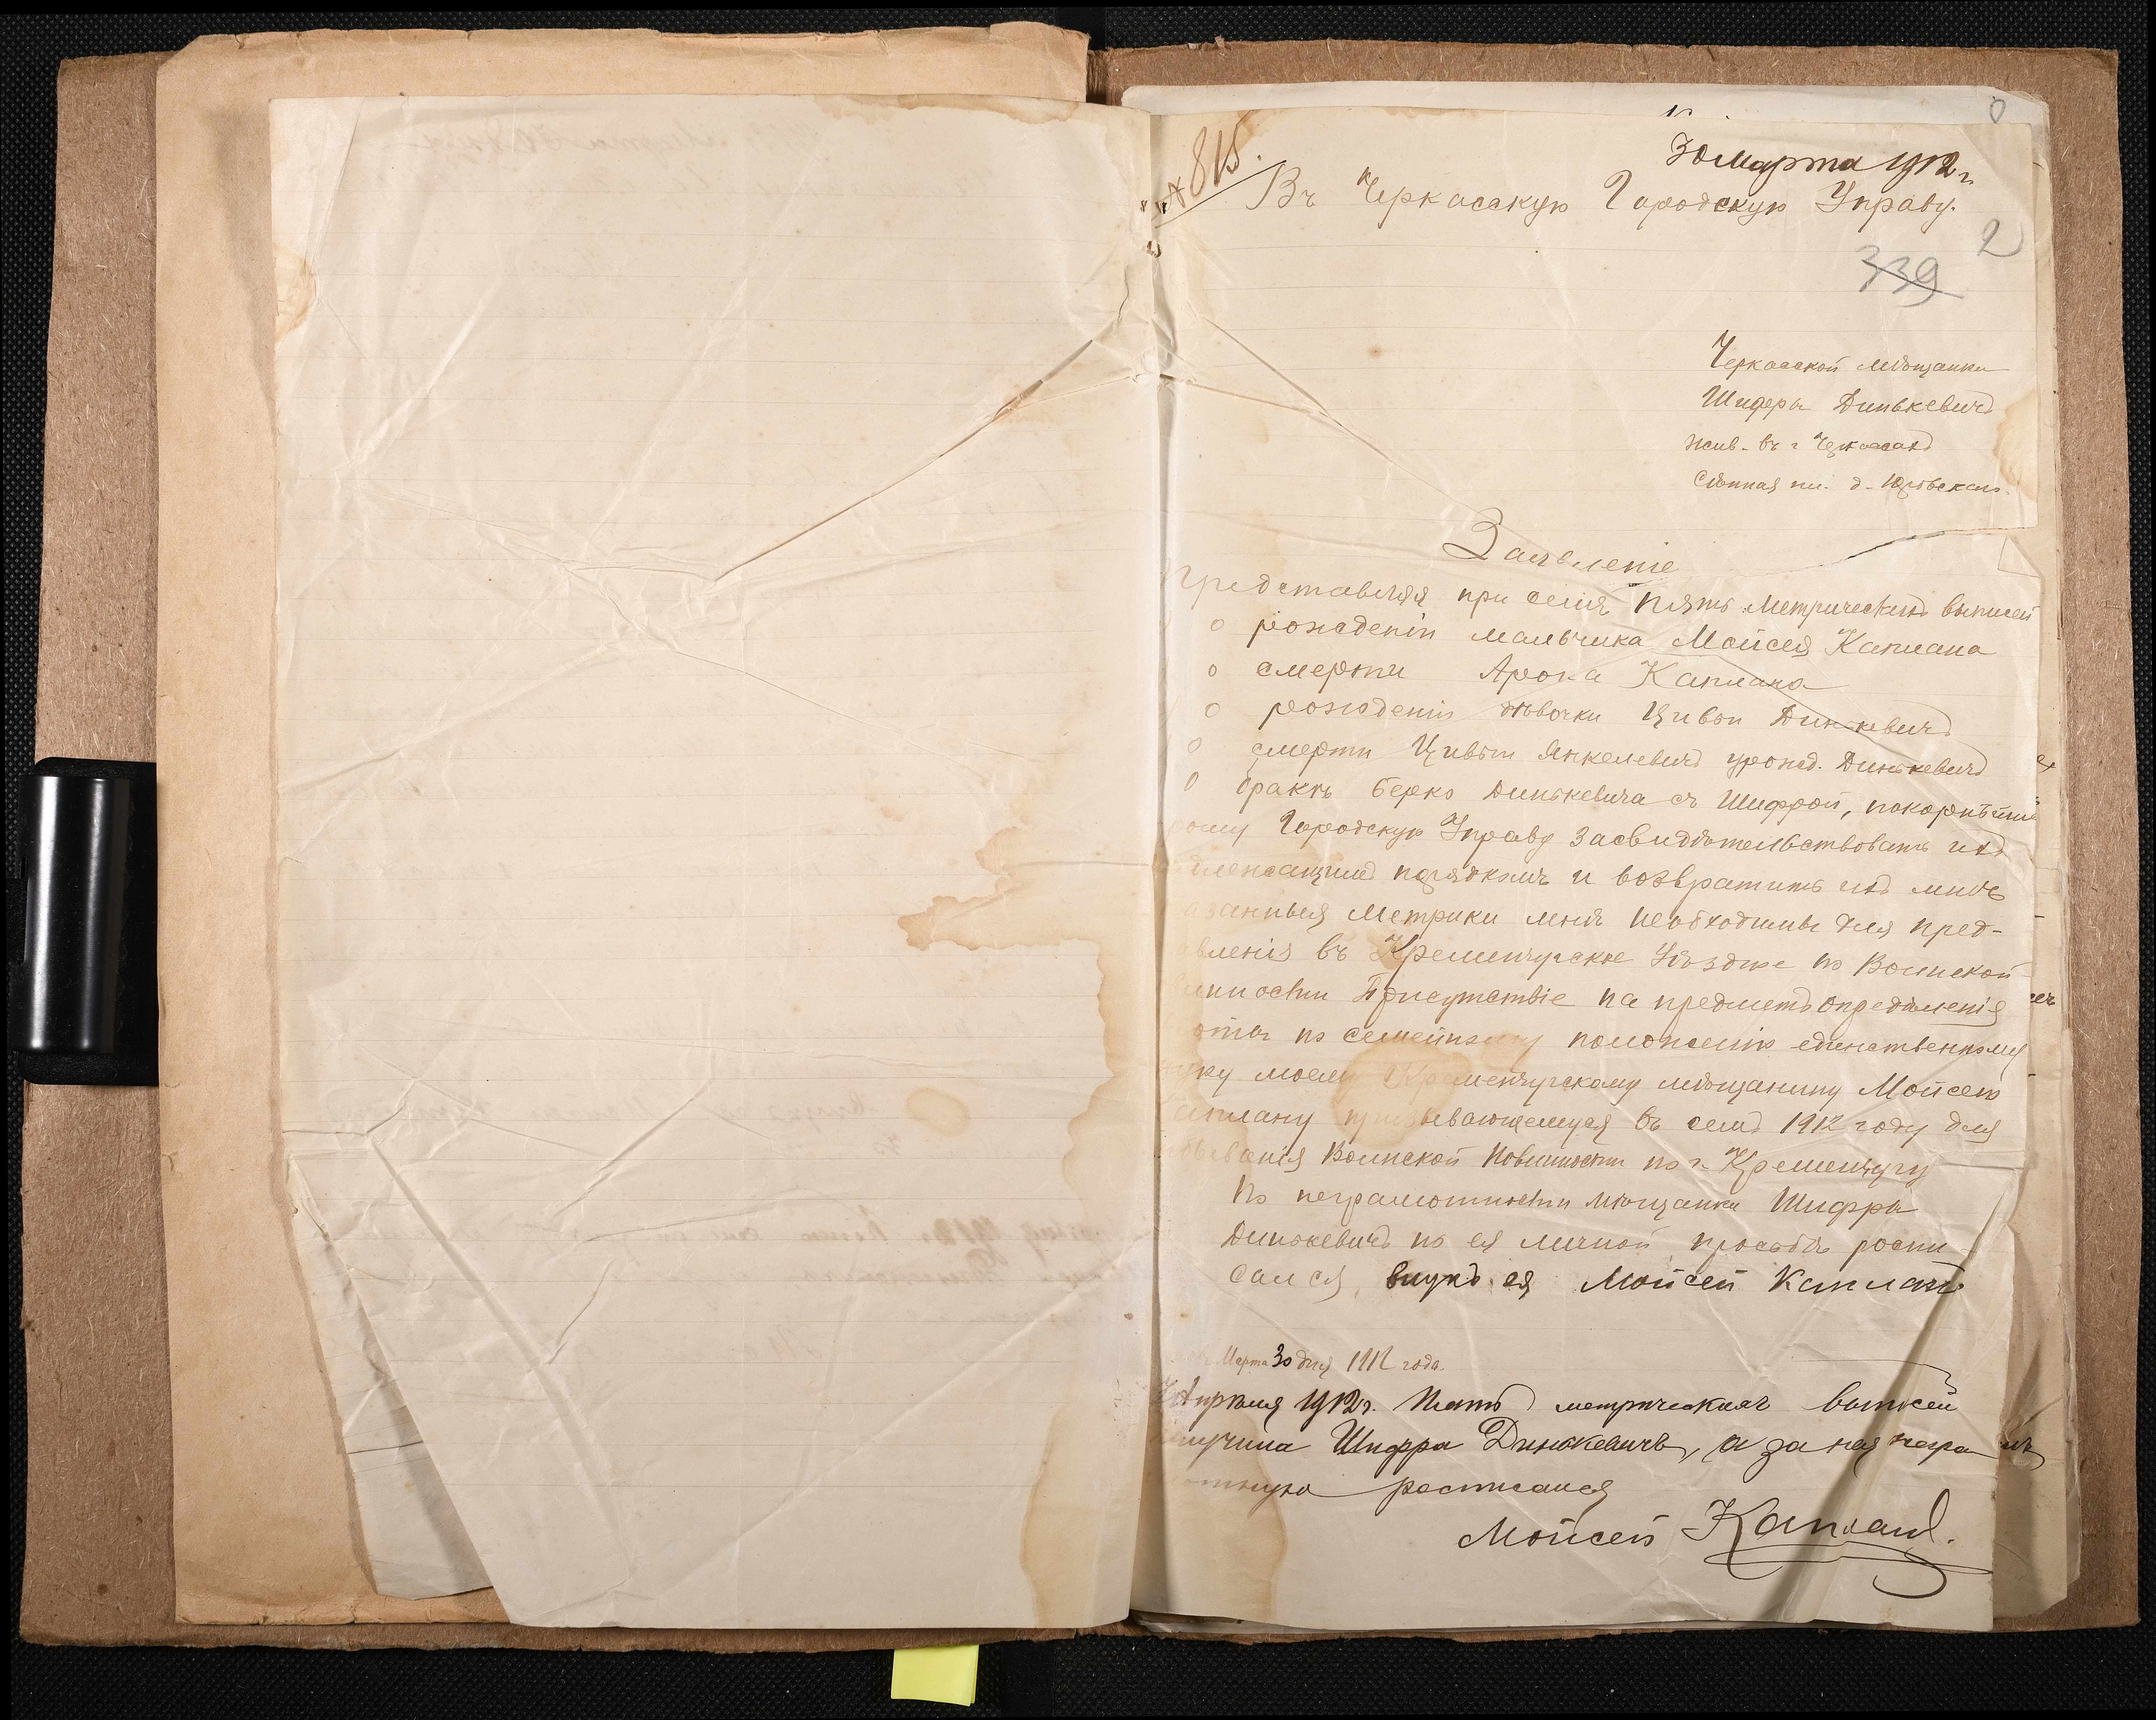 30 Марта 1912 г.
№ 815.
Въ Черкасскую Городскую Управу.
2
339
Черкасской мѣщанки
Шифры Динькевичъ
жив. въ г Черкассахъ
Сѣнная пл. д.
Заявленіе
Представляя при семъ пять метрическихъ выписей
о рожденіи мальчика Мойсея Каплана
о смерти Арона Каплана
о рожденіи дѣвочки Цивьи Динькевичъ
о смерти Цивьи Янкелевичъ урожд. Динькевичъ
о бракѣ Берко Динькевича съ Шифрой, покорнѣйше
Городскую Управу засвидѣтельствовать ихъ
порядкомъ и возвратить ихъ мнѣ
метрики мнѣ необходимы для пред-
въ Кременчугское Уѣздное по Воинской
Присутствіе на предметъ опредѣленія
по семейному положенію единственному
моему Кременчугскому мѣщанину Мойсею
Каплану призывающемуся въ семъ 1912 году для
Воинской Повинности по г. Кременчугу
По неграмотности мѣщанки Шифры
Динькевичъ по ея личной просьбѣ роспи-
сался, внукъ ея Мойсей Капланъ
Марта 30 дня 1912 года.
Апрѣля 1912 г. Пять метрическихъ выписей
получила Шифра Динькевичъ, а за нея негра
росписался
Мойсей Капланъ.